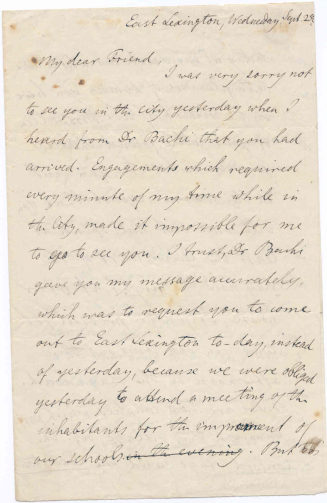 East Lexington, Wednesday Sept. 28.
My dear Friend,
I was very sorry not
to see you in the city yesterday when I
heard from Dr Bachi that you had
arrived. Engagements which required
every minute of my time while in
the City, made it impossible for me
to go to see you. I trust, Dr Bachi
gave you my message accurately,
which was to request you to come
out to East Lexington to-day, instead
of yesterday, because we were obliged
yesterday to attend a meeting of the
inhabitants for the improvement of
our schools in the evening. But